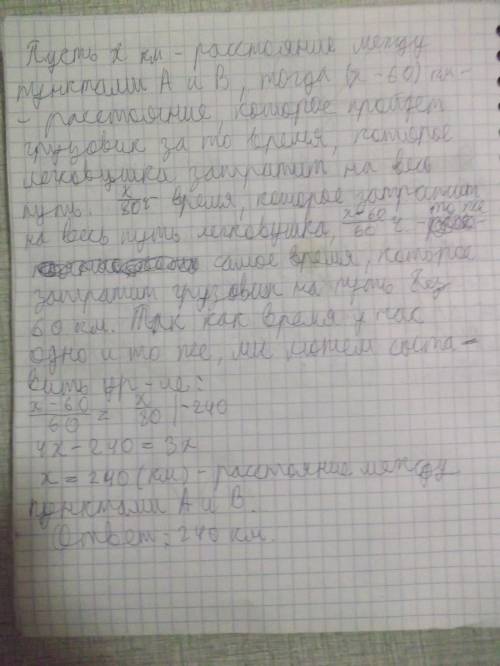 Пусть x км - расстояние между
пунктами А и В, тогда (x-60) км-
- расстояние, которое пройдет
грузовик за то время, которое
легковушка затратит на весь
путь. x/80 ч - время, которое затратит
на весь путь легковушка, x-60/60 ч - то же
самое время, которое
затратит грузовик на путь без
60 км. Так как время у нас
одно и то же, мы можем соста-
вить ур-ие:
x-60/60 = x/80 | ·240
4x-240=3x
x=240 (км) - расстояние между
пунктами А и В.
Ответ: 240 км.